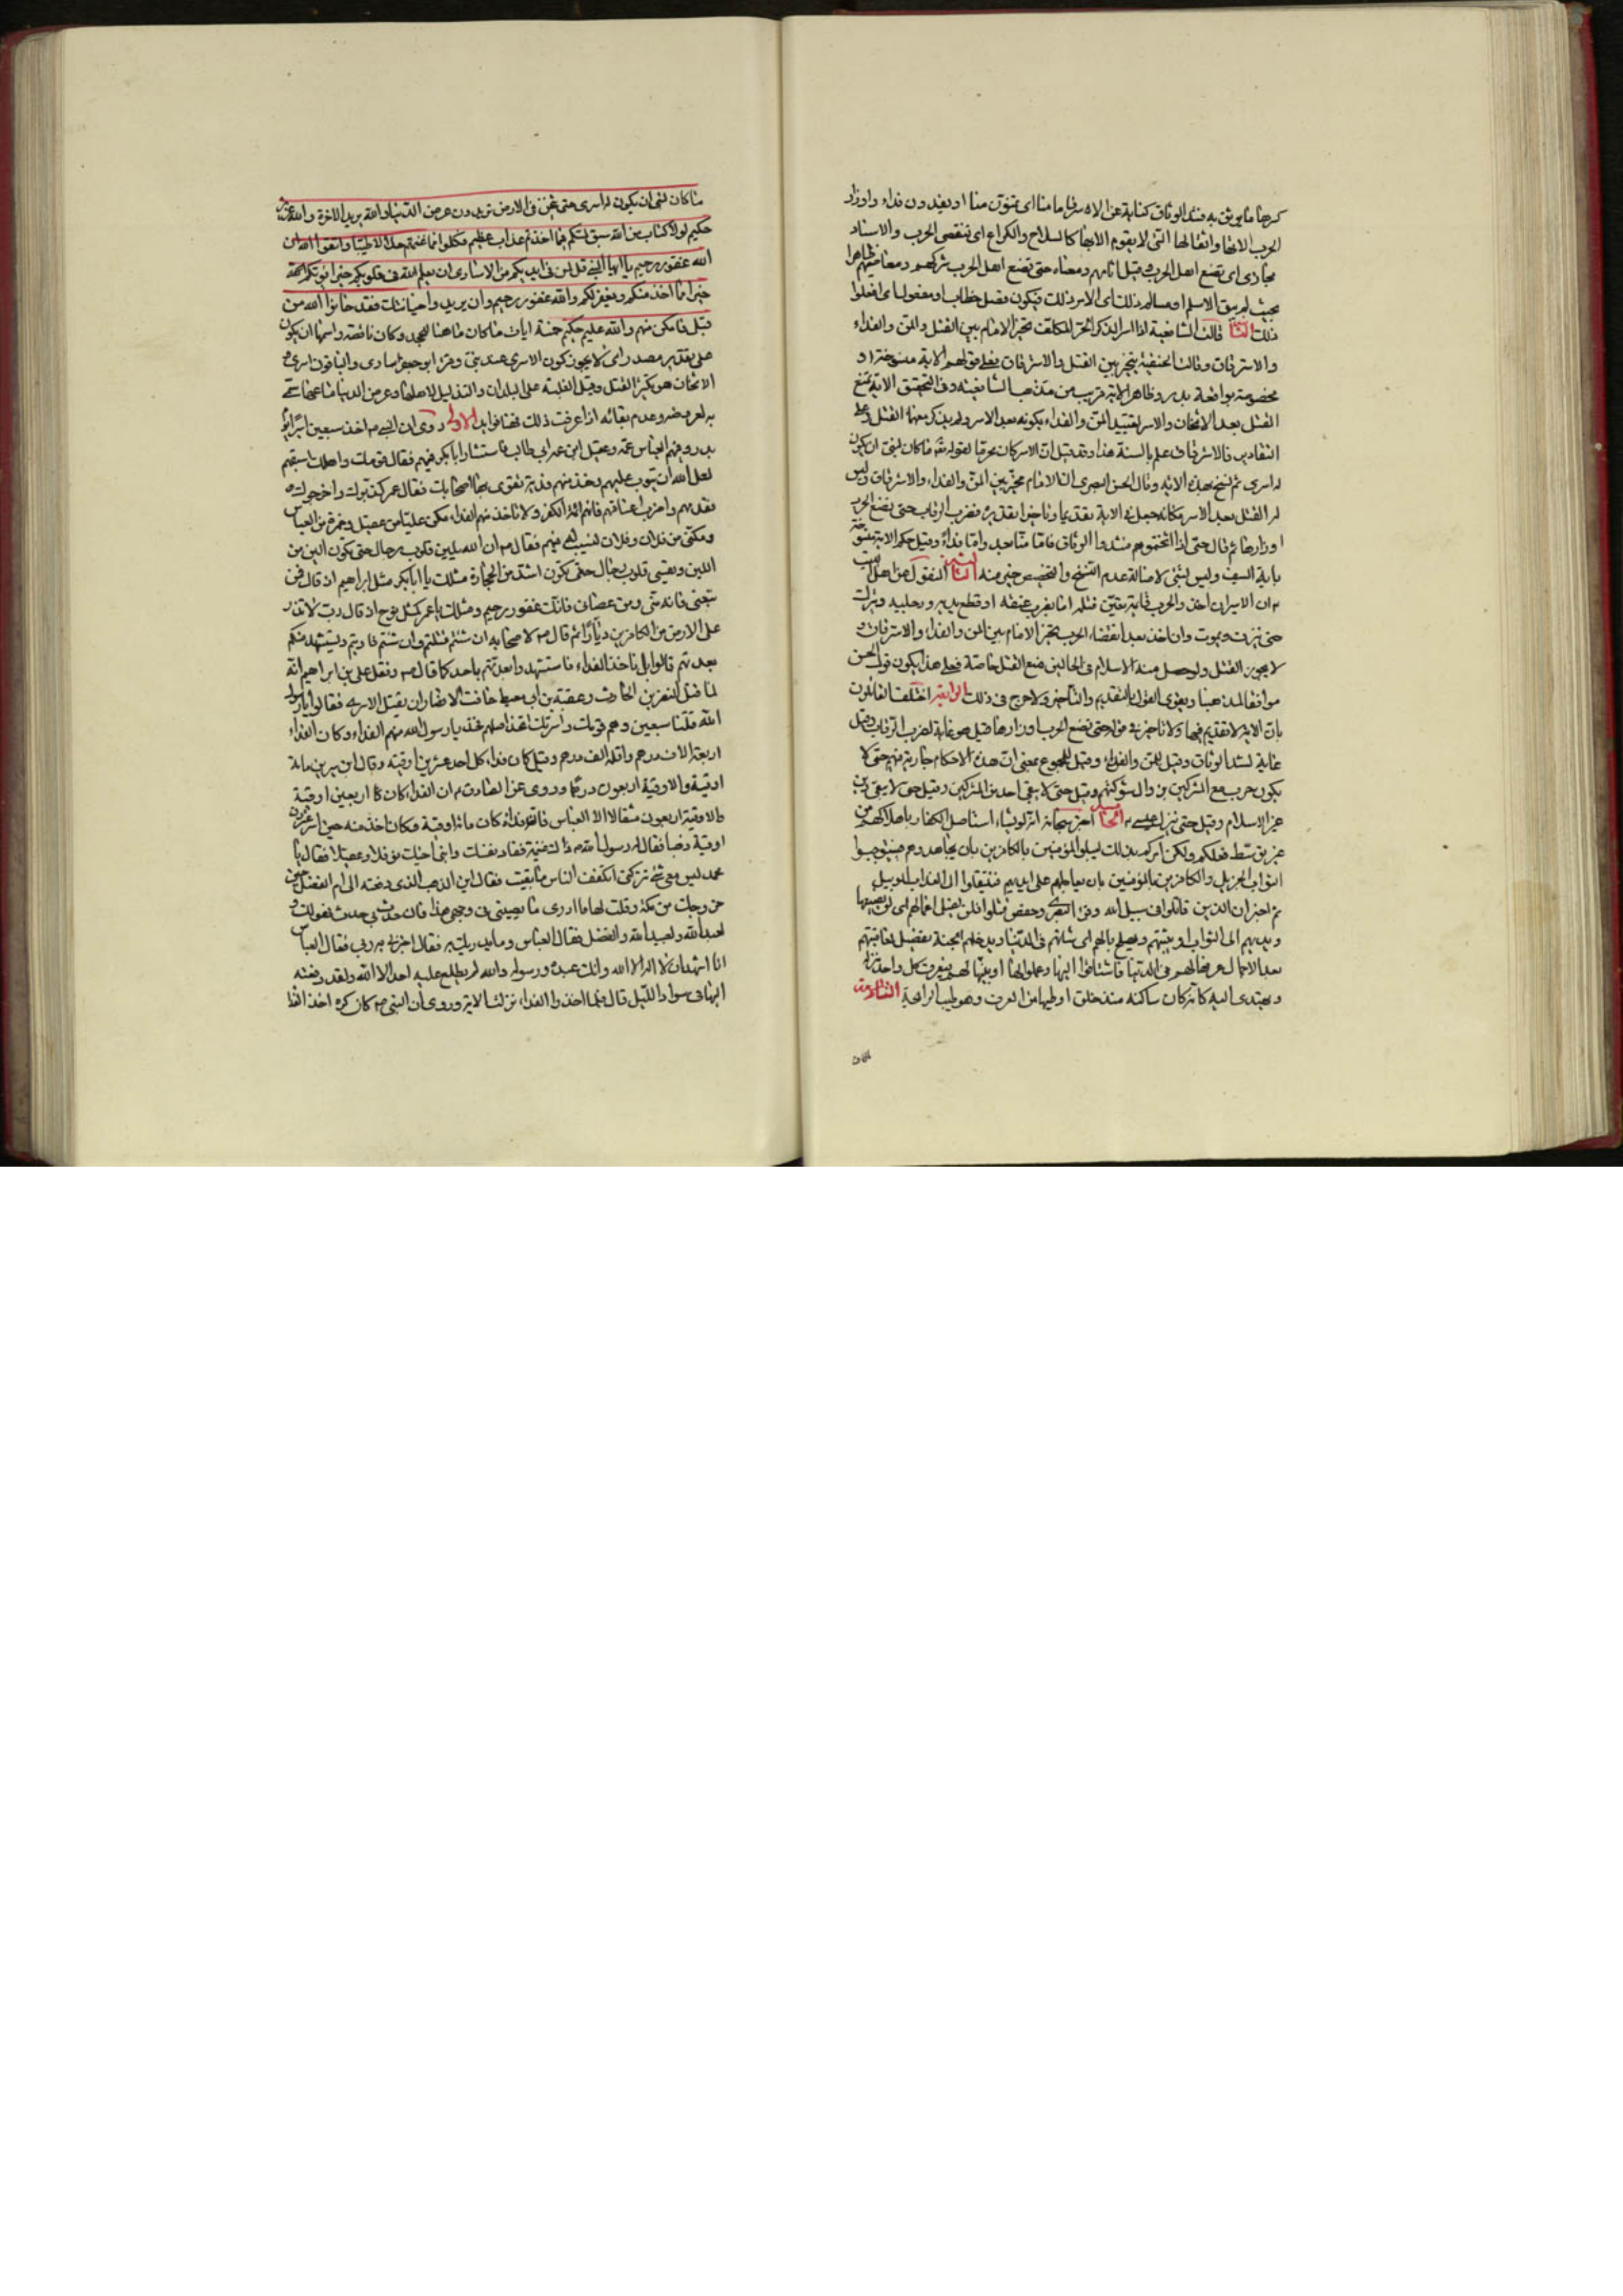 كسرها ما يوثق به فشد الوثاق كناية عن الاسر فاما منا اى تمنون منا او تفدون فداء واوزار
الحرب الاتها واثقالها التى لا يقوم الا بها كالسلاح والكراع اى تنقضى الحرب والاسناد
مجازى اى تضع اهل الحرب وقيل اثامهم ومعناه حتى تضع اهل الحرب شركهم ومعاصيهم
بحيث لم يبق الا مسلم او مسالم ذلك اى الامر ذلك فيكون فصل خطاب او مفعول اى افعلوا
ذلك قالت الشافعية اذا اسر الذكر الحر المكلف تخير الامام بين القتل والمن والفداء
والاسترقاق وقالت الحنفية يتخير بين القتل والاسترقاق فعلى قولهم الاية منسوخة او
مخصوصة بواقعة بدر وظاهر الاية قريب من مذهب الشافعية وفى التحقيق الاية تمنع
القتل بعد الاثخان والاسر لتقييد المن والفداء بكونه بعد الاسر ولم يذكر معهما القتل وعلى
التقادير فالاسترقاق علم بالسنة هذا وقد قيل ان الاسر كان محرما لقوله تعالى ما كان لنبى ان يكون
له اسرى ثم نسخ بهذه الاية وقال الحسن البصرى ان الامام مخير بين المن والفداء والاسترقاق وليس
له القتل بعد الاسر فكانه جعل فى الاية تقديما وتاخيرا تقديره فضرب الرقاب حتى تضع الحرب
اوزارها ثم قال حتى اذا اثخنتموهم فشدوا الوثاق فاما منا بعد واما فداء وقيل حكم الاية منسوخ
باية السيف وليس بشئ لاصالة عدم النسخ والتخصيص خير منه المنقول عن اهل البيت
ان الاسير ان اخذ والحرب قائمة تعين قتله اما بضرب عنقه او قطع يديه ورجليه ويترك
حتى ينزف ويموت وان اخذ بعد انقضاء الحرب تخير الامام بين المن والفداء والاسترقاق و
لا يجوز القتل ولو حصل منه الاسلام فى الحالين منع القتل خاصة فعلى هذا يكون قول الحسن
موافقا لمذهبنا ويقوى القول بالتقديم والتاخير ولا حرج فى ذلك الرابعة اختلف القائلون
بان الاية لا تقديم فيها ولا تاخير فى قوله حتى تضع الحرب اوزارها قيل هو غاية لضرب الرقاب وقيل
غاية لشد الوثاق وقيل للمن والفداء وقيل للمجموع بمعنى ان هذه الاحكام جارية فيهم حتى لا
يكون حرب مع المشركين بزوال شوكتهم وقيل حتى لا يبقى احد من المشركين وقيل حتى لا يبقى دين
غير الاسلام وقيل حتى ينزل عيسى اخبر سبحانه انه لو يشاء استاصل الكفار باهلاكهم من
غير توسط فعلكم ولكن امركم بذلك ليبلو المؤمنين بالكافرين بان يجاهدوهم فيستوجبوا
الثواب الجزيل والكافرين بالمؤمنين بان يعاجلهم على ايديهم فينقلوا الى العذاب الوبيل
ثم اخبر ان الذين قاتلوا فى سبيل الله وحفص قتلوا فلن يضل اعمالهم اى لن يضيعها
ويهديهم الى الثواب او يثبتهم ويصلح بالهم اى شانهم فى الدنيا ويدخلهم الجنة
عرفها لهم فى الدنيا فاشتاقوا اليها وعملوا لها او بينها لهم فيعرف كل واحد منزله
ويهتدى اليه كانه كان ساكنه منذ خلق او طيبها من العرف وهو طيب الرائحة
ما كان لنبى ان يكون له اسرى حتى يثخن فى الارض تريدون عرض الدنيا والله يريد الاخرة والله عزيز
حكيم لولا كتاب من الله سبق لمسكم فيما اخذتم عذاب عظيم فكلوا مما غنمتم حلالا طيبا واتقوا الله ان
الله غفور رحيم يا ايها النبى قل لمن فى ايديكم من الاسارى ان يعلم الله فى قلوبكم خيرا يؤتكم
خيرا مما اخذ منكم ويغفر لكم والله غفور رحيم وان يريدوا خيانتك فقد خانوا الله من
قبل فامكن منهم والله عليم حكيم خمسة ايات ما كان ما هنا للجحد وكان ناقصة واسمها ان يكون
على تقدير مصدر اى لا يجوز كون الاسرى عند نبى وقرا ابو جعفر اسارى والباقون اسرى و
الاثخان هو تكثير القتل وقيل الغلبة على البلدان والتذليل لاهلها وعرض الدنيا متاعها سمى
به لعروضه وعدم بقائه اذا عرفت ذلك فهنا فوائد الاولى روى ان النبى اخذ سبعين اسيرا يوم
بدر وفيهم العباس عمه وعقيل ابن عمه ابى طالب فاستشار ابا بكر فيهم فقال قومك واهلك استبقهم
لعل الله ان يتوب عليهم وخذ منهم فدية تقوى بها اصحابك فقال عمر كذبوك واخرجوك
فقدمهم واضرب اعناقهم فانهم ائمة الكفر ولا تاخذ منهم الفداء مكن عليا من عقيل وحمزة من العباس
ومكنى من فلان وفلان لنسيب له منهم فقال ان الله يلين قلوب رجال حتى يكون الين من
اللين ويقسى قلوب رجال حتى تكون اشد من الحجارة مثلك يا ابا بكر مثل ابراهيم اذ قال فمن
تبعنى فانه منى ومن عصانى فانك غفور رحيم ومثلك يا عمر كمثل نوح اذ قال رب لا تذر
على الارض من الكافرين ديارا ثم قال لاصحابه ان شئتم قتلتم وان شئتم فاديتم ويستشهد منكم
بعدتهم قالوا بل ناخذ الفداء فاستشهدوا بعدتهم باحد كما قال ونقل على بن ابراهيم انه
لما قتل النضر بن الحارث وعقبة بن ابى معيط خافت الانصار ان يقتل الاسرى فقالوا يا رسول
الله قتلنا سبعين وهم قومك واسرتك اتجذ اصلهم فخذ يا رسول الله منهم الفداء وكان الفداء
اربعة الاف درهم واقله الف درهم وقيل كان فداء كل احد عشرين اوقية وقال ابن سيرين مائة
اوقية والاوقية اربعون درهما وروى عن الصادق ان الفداء كان اربعين اوقية
والاوقية اربعون مثقالا الا العباس فان فداءه كان مائة اوقية وكان اخذ منه حين اسر عشرون
اوقية ذهبا فقال له رسول الله ذلك غنيمة ففاد نفسك وابنى اخيك نوفلا وعقيلا فقال يا
محمد ليس معى شئ تتركنى اتكفف الناس ما بقيت فقال اين الذهب الذى دفعته الى ام الفضل حين
خروجك من مكة وقلت لها ما ادرى ما يصيبنى فى وجهى هذا فان حدث بى حدث فهو لك و
لعبد الله ولعبيد الله والفضل فقال العباس وما يدريك به فقال اخبرنى به ربى فقال العباس
انا اشهد ان لا اله الا الله وانك عبده ورسوله والله لم يطلع عليه احد الا الله ولقد دفعته
اليها فى سواد الليل قال فلما اخذوا الفداء نزلت الاية وروى ان النبى كان كره اخذ الفدا